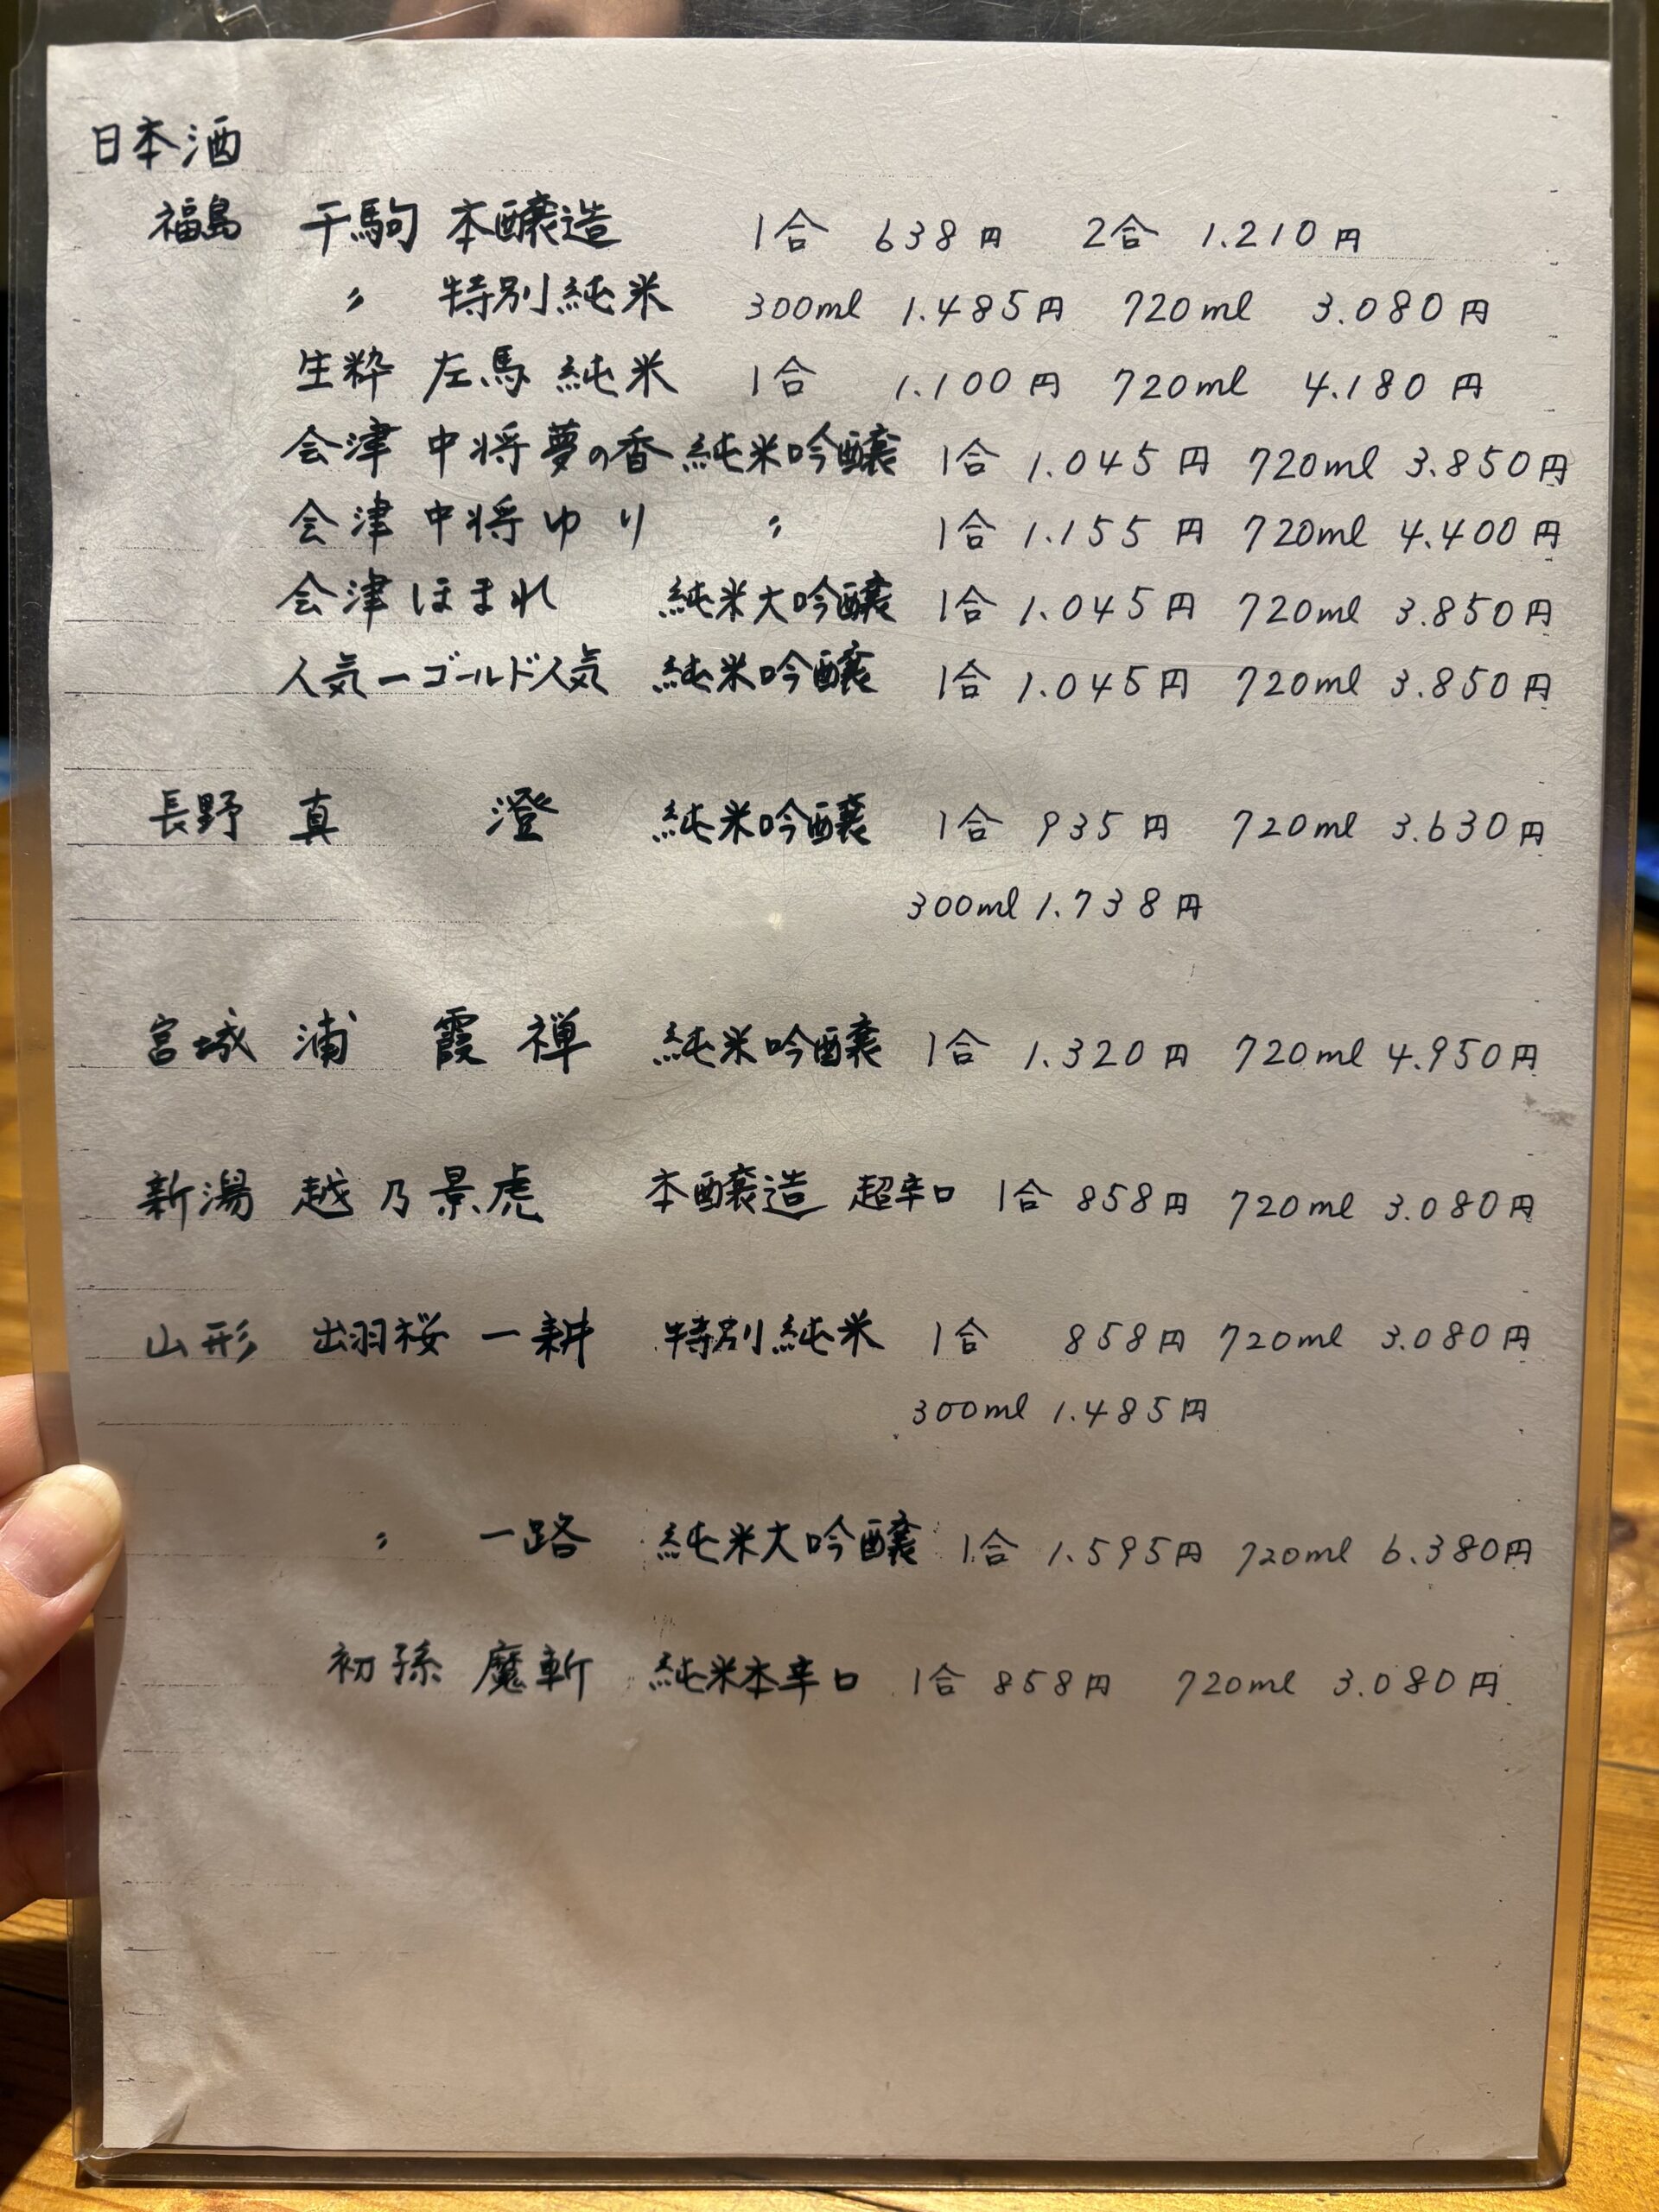 日本酒
福島 千駒 本醸造 1合 638円 2合 1.210円
〃 特別純米 300ml 1.485円 720ml 3.080円
生粋 左馬 純米 1合 1.100円 720ml 4.180円
会津 中将 夢の香 純米吟醸 1合 1.045円 720ml 3.850円
会津 中将 ゆり 〃 1合 1.155円 720ml 4.400円
会津 ほまれ 純米大吟醸 1合 1.045円 720ml 3.850円
人気一ゴールド人気 純米吟醸 1合 1.045円 720ml 3.850円
長野 真 澄 純米吟醸 1合 935円 720ml 3.630円
300ml 1.738円
宮城 浦 霞 禅 純米吟醸 1合 1.320円 720ml 4.950円
新潟 越乃景虎 本醸造 超辛口 1合 858円 720ml 3.080円
山形 出羽桜 一耕 特別純米 1合 858円 720ml 3.080円
300ml 1.485円
〃 一路 純米大吟醸 1合 1.595円 720ml 6.380円
初孫 魔斬 純米本辛口 1合 858円 720ml 3.080円